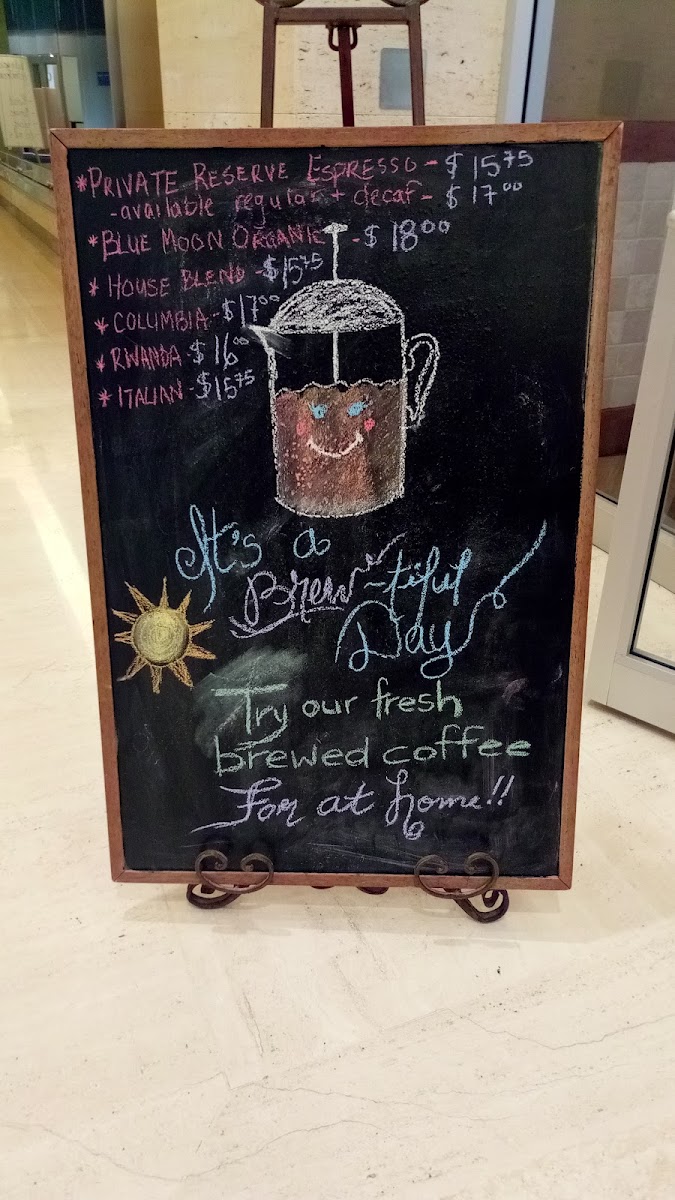 *PRIVATE RESERVE ESPRESSO - $15.75
-available regular + decaf - $17.00
*BLUE MOON ORGANIC - $18.00
*HOUSE BLEND - $15.75
*COLUMBIA - $17.00
*RWANDA $16.00
*ITALIAN - $15.75
It's a
Brew-tiful
Day
Try our fresh
brewed coffee
For at home!!